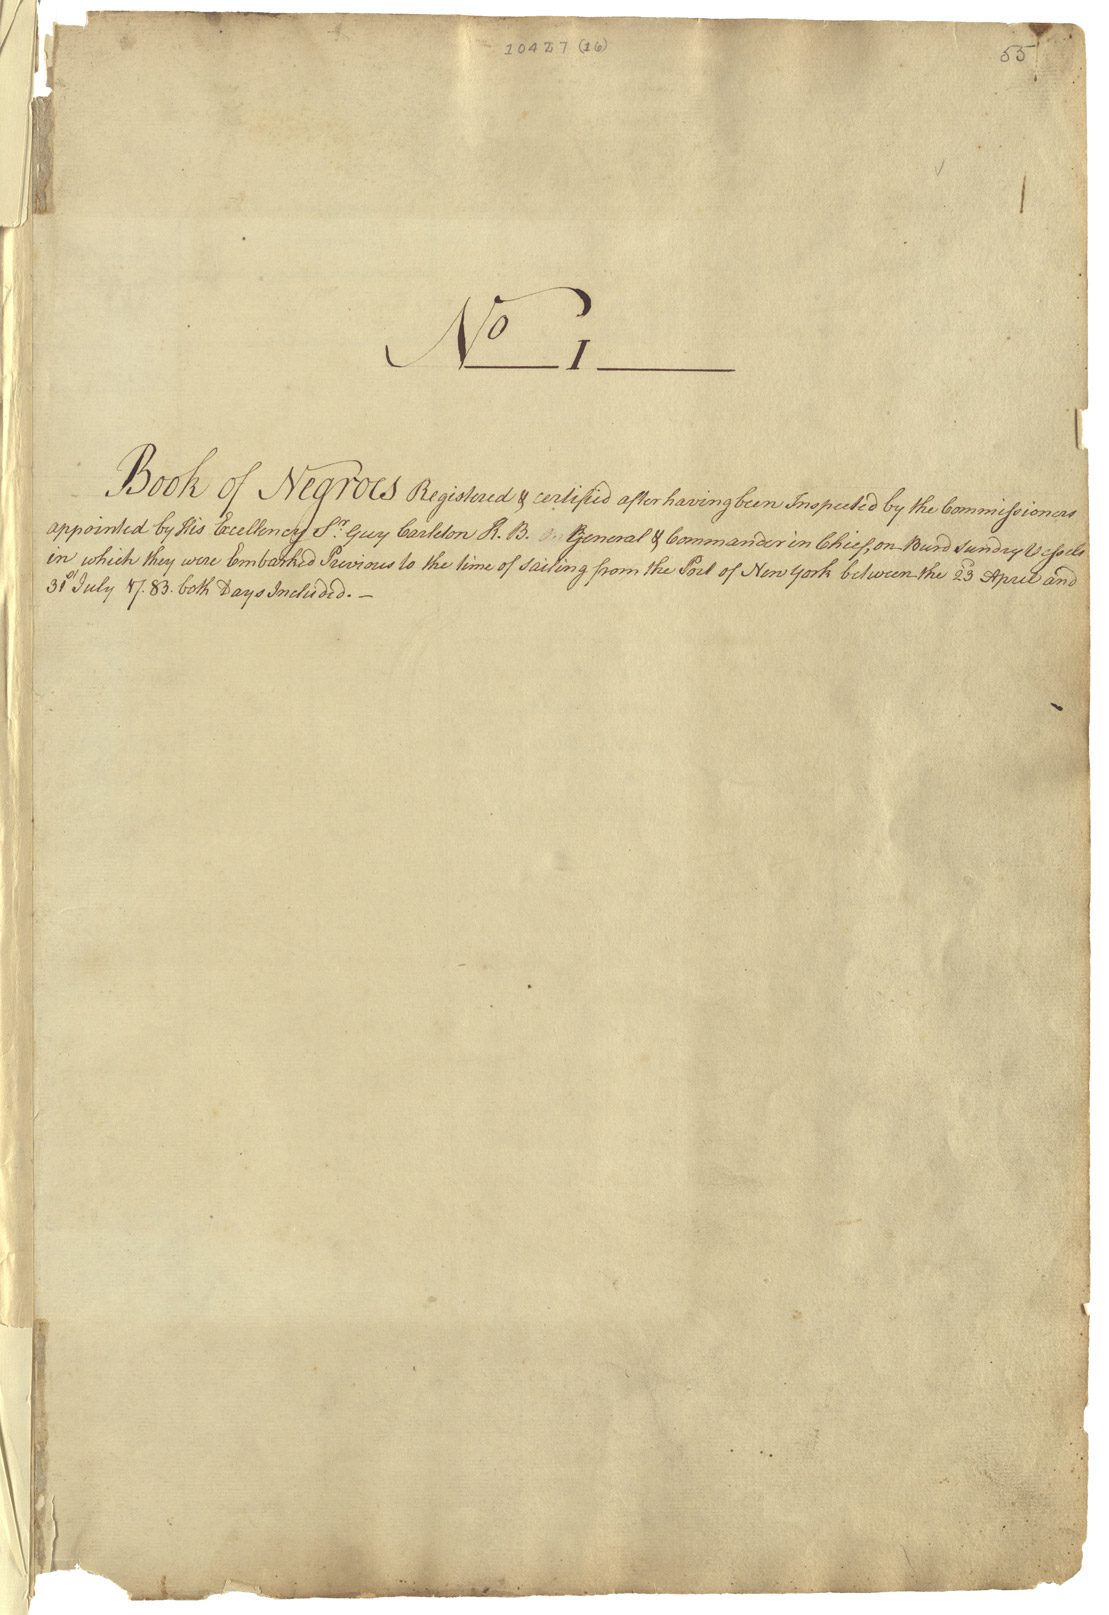 10427 (16)
55
No 1
Book of Negroes Registered & certified after having been Inspected by the Commissioners
appointed by His Excellency Sr. Guy Carleton K. B. General & Commander in Chief, on Board Sundry Vessels
in which they were Embarked Previous to the time of sailing from the Port of New York between the 23d April and
31st July 1783. both Days Included. —